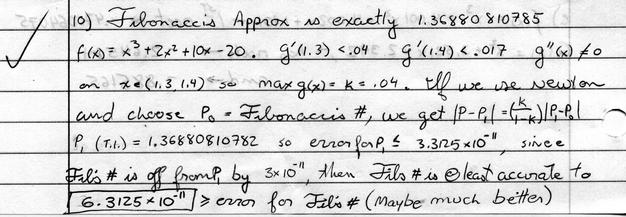 10) Fibonaccis Approx is exactly 1.36880810785
f(x) = x³ + 2x² + 10x - 20. g'(1.3) < .04 g'(1.4) < .017 g"(x) ≠ 0
on x ∈ (1.3, 1.4) so max g(x) = K = .04. If we use Newton
and choose P₀ = Fibonaccis #, we get |P-P₁| = (k/1-k)|P₁-P₀|
P₁ (T.I.) = 1.36880810782 so error for P₁ ≤ 3.3125×10⁻¹¹, since
Fib's # is off from P₁ by 3×10⁻¹¹, then Fib's # is @ least accurate to
6.3125×10⁻¹¹ ≥ error for Fib's # (Maybe much better)